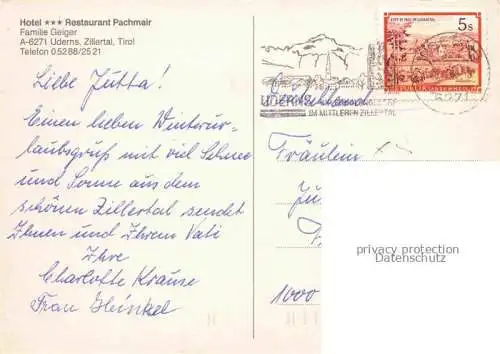 Hotel ★★★ Restaurant Pachmair
Familie Geiger
A-6271 Uderns, Zillertal, Tirol
Telefon 05288/2521
Liebe Jutta!
Einen lieben Winterur-
laubsgruß mit viel Schnee
und Sonne aus dem
schönen Zillertal sendet
Ihnen und Ihrem Vati
Ihre
Charlotte Krause
Frau Heinkel
5s
REPUBLIK ÖSTERREICH
UDERNS
IM MITTLEREN ZILLERTAL
6271
Fräulein
Ju
1000
privacy protection
Datenschutz